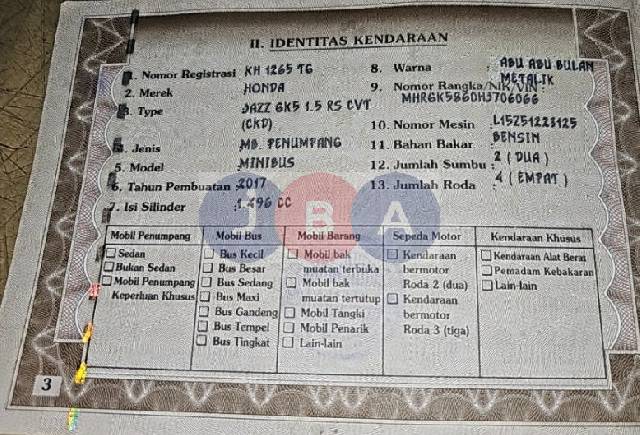 II. IDENTITAS KENDARAAN
1. Nomor Registrasi KH 1265 TG
2. Merek HONDA
3. Type JAZZ GK5 1.5 RS CVT
(CKD)
4. Jenis MB. PENUMPANG
5. Model MINIBUS
6. Tahun Pembuatan : 2017
7. Isi Silinder : 1.496 CC
8. Warna : ABU ABU BULAN
METALIK
9. Nomor Rangka/NIK/VIN :
MHRGK5860HJ706066
10. Nomor Mesin : L15Z51228125
11. Bahan Bakar : BENSIN
12. Jumlah Sumbu : 2 ( DUA )
13. Jumlah Roda : 4 ( EMPAT )
JBA
Mobil Penumpang
Sedan
Bukan Sedan
Mobil Penumpang
Keperluan Khusus
Mobil Bus
Bus Kecil
Bus Besar
Bus Sedang
Bus Maxi
Bus Gandeng
Bus Tempel
Bus Tingkat
Mobil Barang
Mobil bak
muatan terbuka
Mobil bak
muatan tertutup
Mobil Tangki
Mobil Penarik
Lain-lain
Sepeda Motor
Kendaraan
bermotor
Roda 2 (dua)
Kendaraan
bermotor
Roda 3 (tiga)
Kendaraan Khusus
Kendaraan Alat Berat
Pemadam Kebakaran
Lain-lain
3